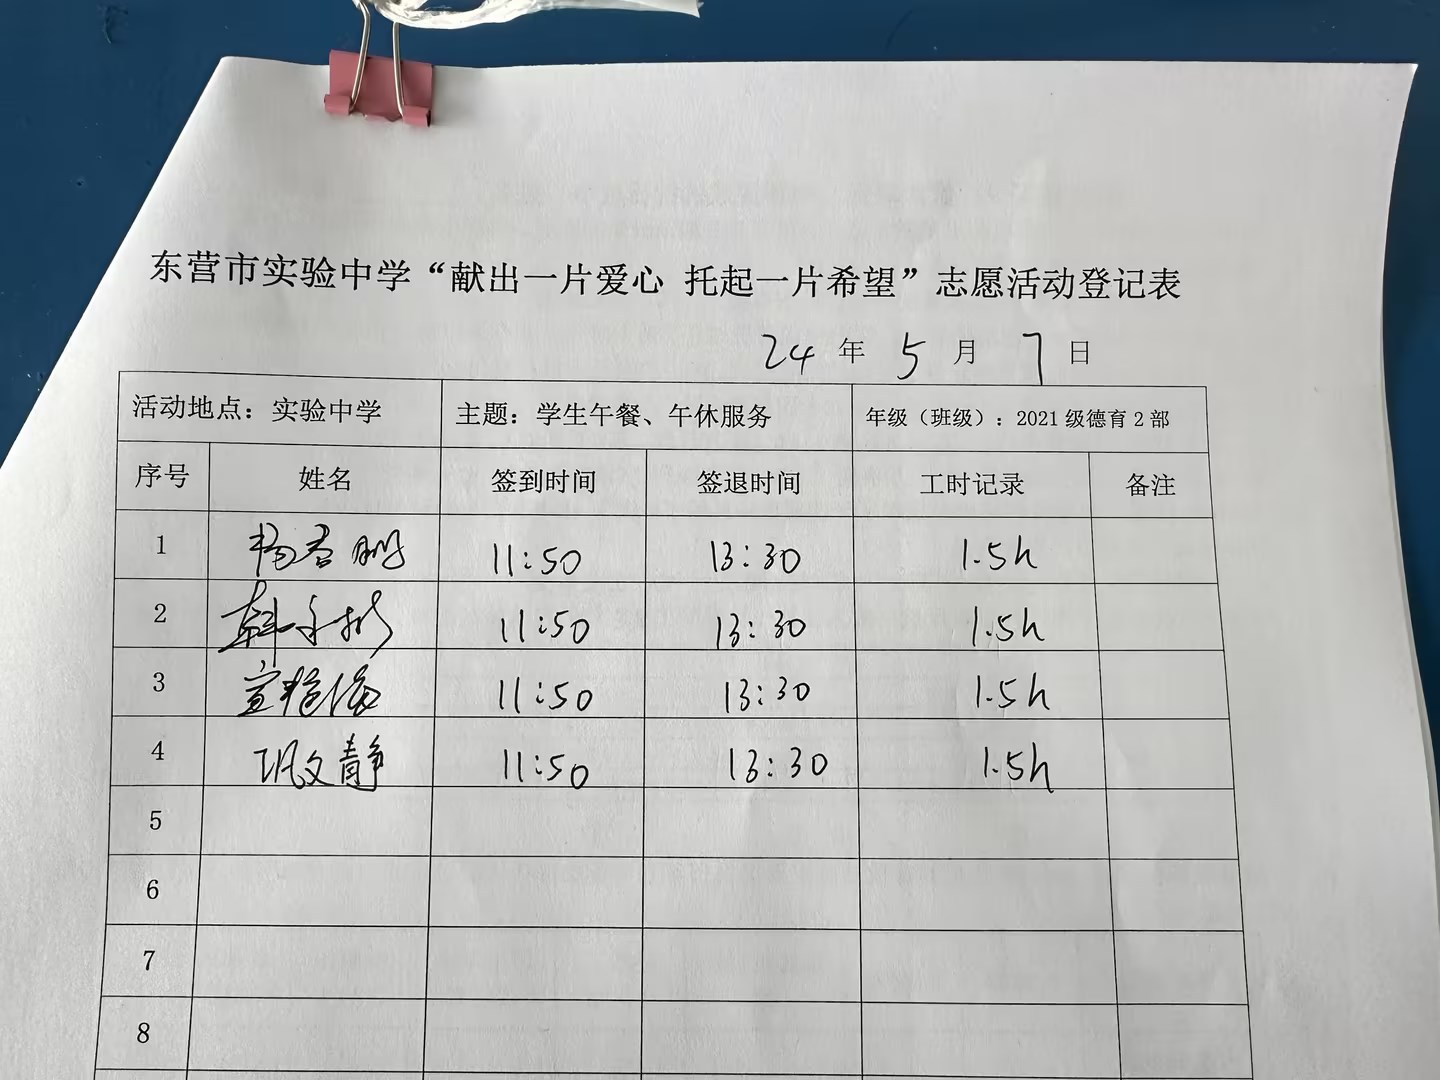 东营市实验中学“献出一片爱心 托起一片希望”志愿活动登记表
24 年 5 月 7 日
活动地点：实验中学 主题：学生午餐、午休服务 年级（班级）：2021 级德育 2 部
序号 姓名 签到时间 签退时间 工时记录 备注
1 杨 鹏 11:50 13:30 1.5h
2 韩 11:50 13:30 1.5h
3 宣 海 11:50 13:30 1.5h
4 巩文静 11:50 13:30 1.5h
5
6
7
8